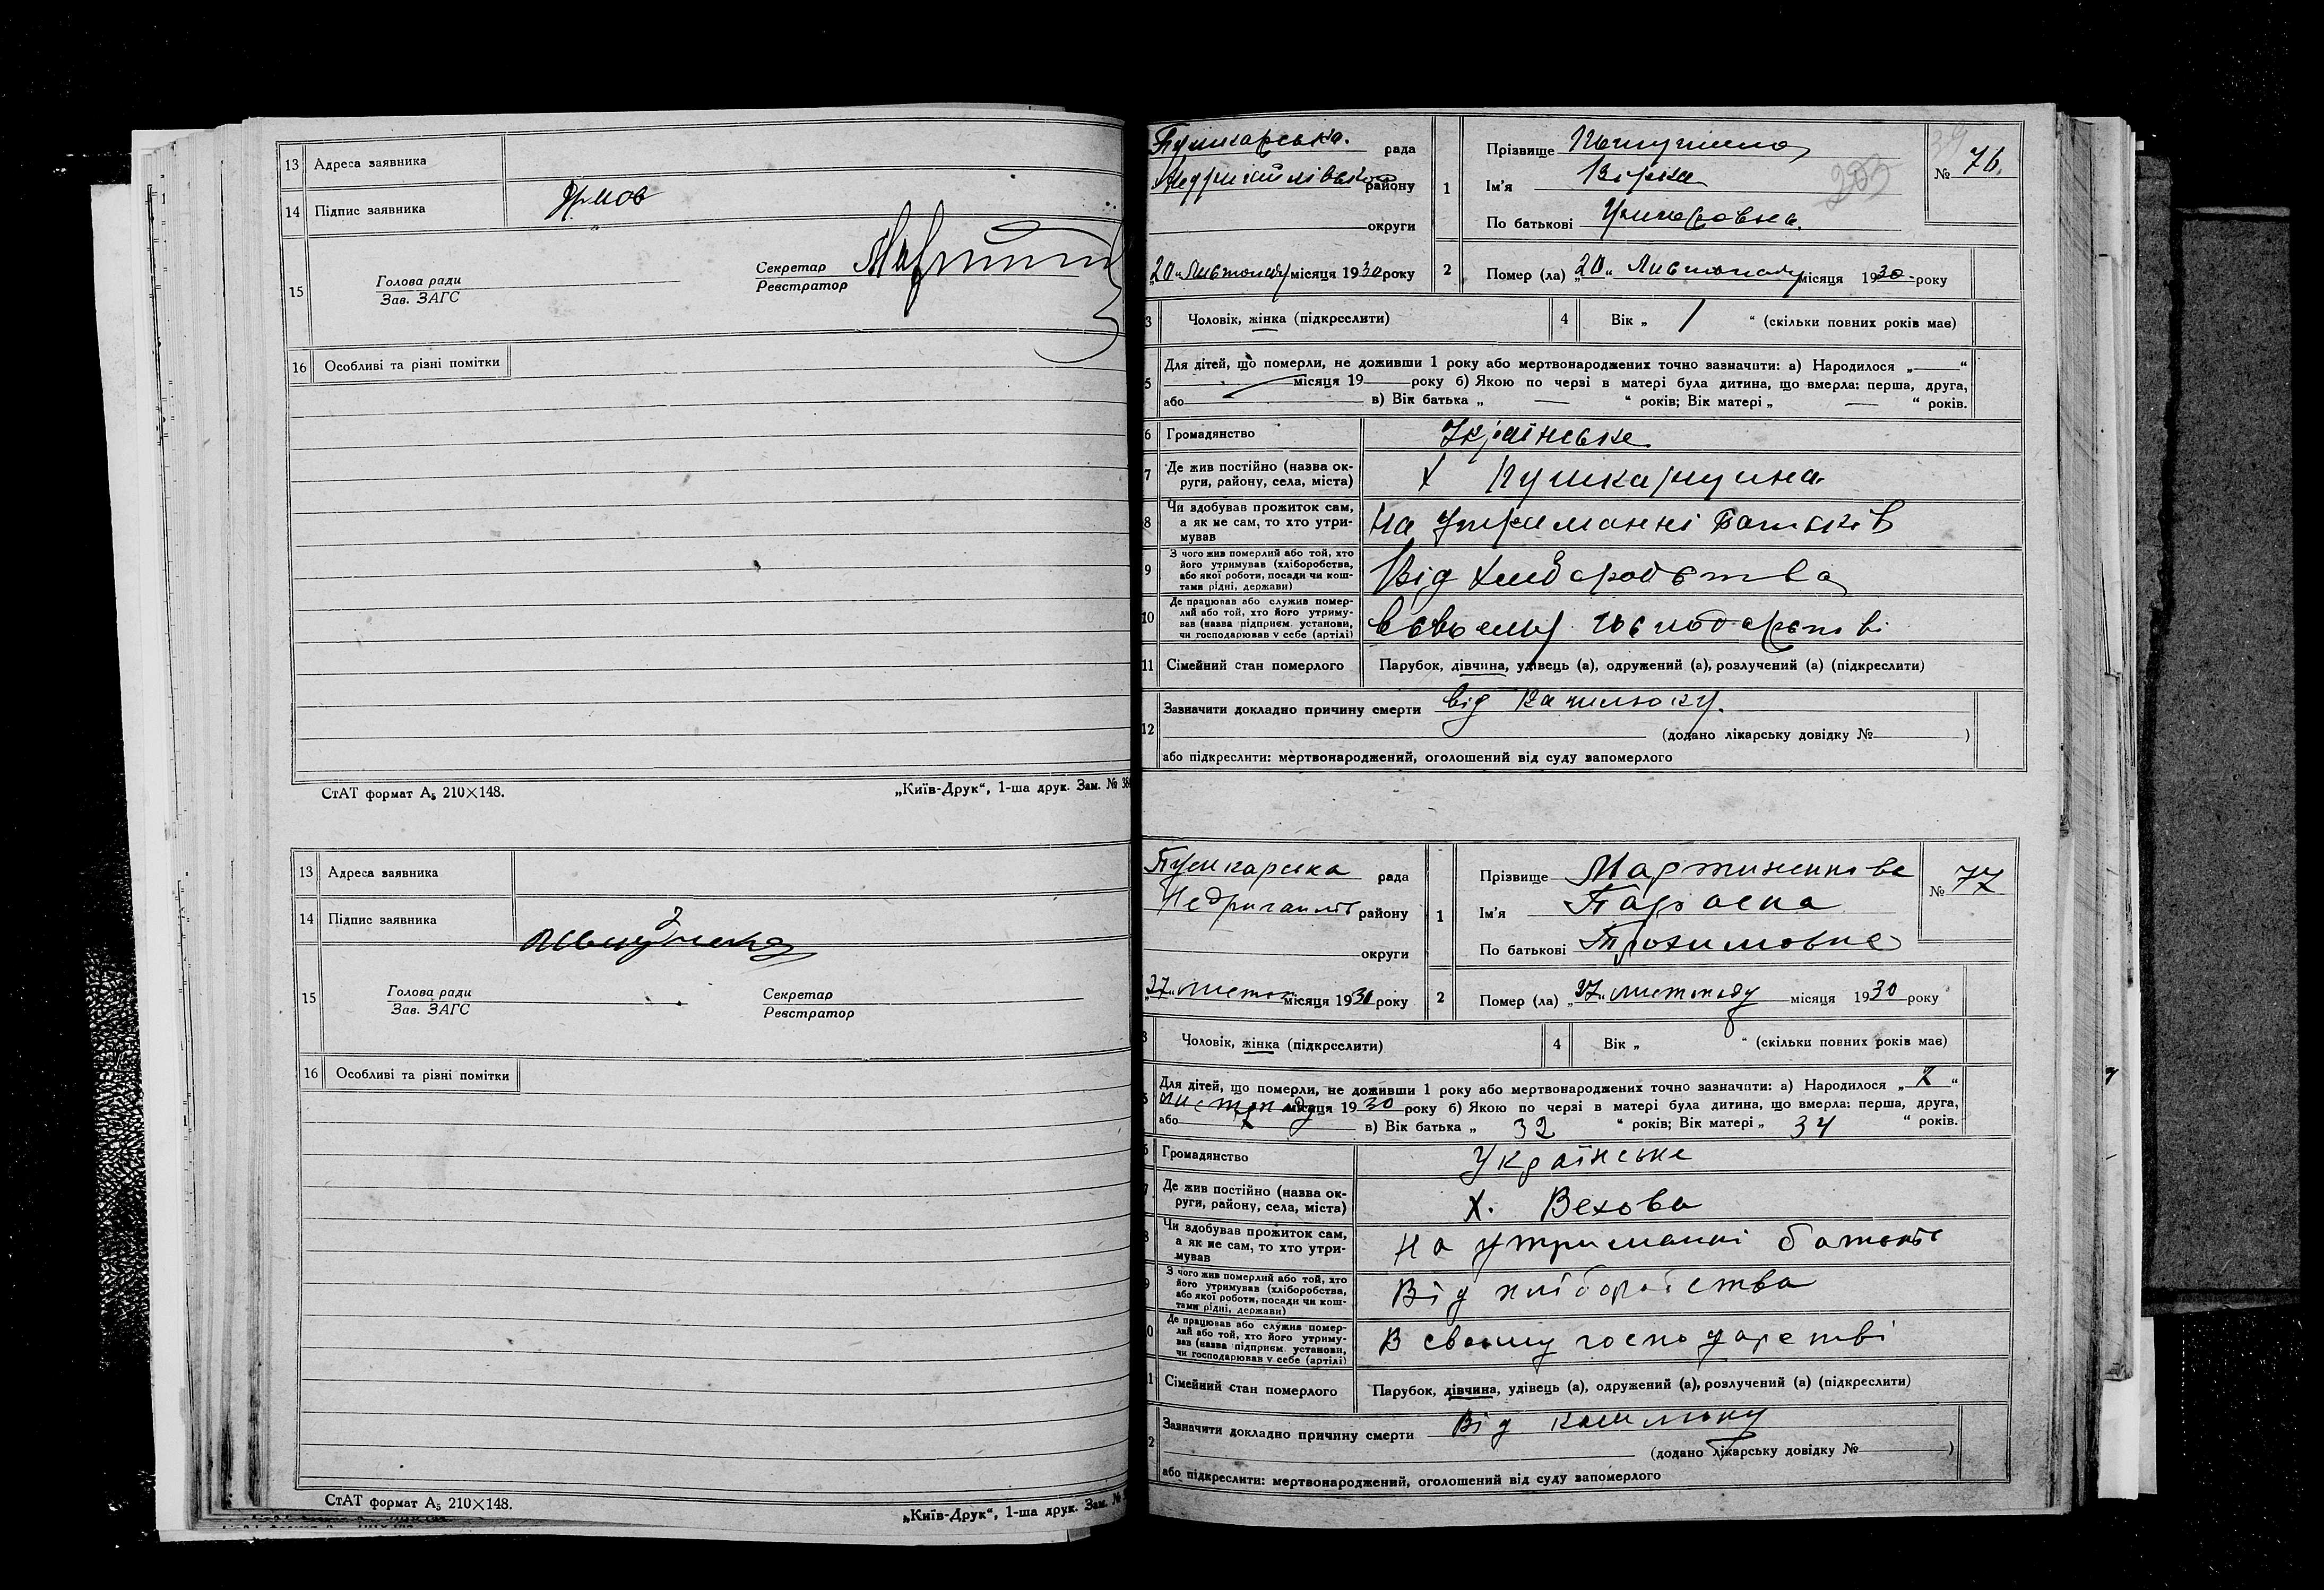 13 Адреса заявника
14 Підпис заявника
15 Голова ради
Зав. ЗАГС
Секретар
Реєстратор
16 Особливі та різні помітки
СтАТ формат А₅ 210×148.
„Київ-Друк“, 1-ша друк. Зам. №
13 Адреса заявника
14 Підпис заявника
15 Голова ради
Зав. ЗАГС
Секретар
Реєстратор
16 Особливі та різні помітки
СтАТ формат А₅ 210×148.
„Київ-Друк“, 1-ша друк. Зам. №
Пушкарська. рада
району
округи
„20“ Листопаду місяця 1930 року
1 Прізвище
Ім'я Вірка
По батькові
№ 76.
203
2 Помер (ла) „20“ Листопаду місяця 1930 року
3 Чоловік, жінка (підкреслити)
4 Вік „ 1 “ (скільки повних років має)
5 Для дітей, що померли, не доживши 1 року або мертвонароджених точно зазначити: а) Народилося „—“
місяця 19 — року б) Якою по черзі в матері була дитина, що вмерла: перша, друга,
або в) Вік батька „ — “ років; Вік матері „ — “ років.
6 Громадянство Українське
7 Де жив постійно (назва ок-
руги, району, села, міста) х Пушкарщина
8 Чи вдобував прожиток сам,
а як не сам, то хто утри-
мував На утриманні Батьків
9 З чого жив померлий або той, хто
його утримував (хліборобства,
або якої роботи, посади чи кош-
тами рідні, держави) Від Хліборобства
10 Де працював або служив помер-
лий або той, хто його утриму-
вав (назва підприєм. установи,
чи господарював у себе (артілі) В своєму господарстві
11 Сімейний стан померлого Парубок, дівчина, удівець (а), одружений (а), розлучений (а) (підкреслити)
12 Зазначити докладно причину смерти від Кашлюку.
(додано лікарську довідку № )
або підкреслити: мертвонароджений, оголошений від суду запомерлого
Пушкарська рада
району
округи
„27“ листоп. місяця 1930 року
1 Прізвище
Ім'я Параска
По батькові Трохимовна
№ 77
2 Помер (ла) „27“ листопаду місяця 1930 року
3 Чоловік, жінка (підкреслити)
4 Вік „ “ (скільки повних років має)
5 Для дітей, що померли, не доживши 1 року або мертвонароджених точно зазначити: а) Народилося „ 7 “
листопаду місяця 1930 року б) Якою по черзі в матері була дитина, що вмерла: перша, друга,
або в) Вік батька „ 32 “ років; Вік матері „ 34 “ років.
6 Громадянство Українське
7 Де жив постійно (назва ок-
руги, району, села, міста) х. Вехова
8 Чи вдобував прожиток сам,
а як не сам, то хто утри-
мував На утриманні батьків
9 З чого жив померлий або той, хто
його утримував (хліборобства,
або якої роботи, посади чи кош-
тами рідні, держави) Від хліборобства
10 Де працював або служив помер-
лий або той, хто його утриму-
вав (назва підприєм. установи,
чи господарював у себе (артілі) В своєму господарстві
11 Сімейний стан померлого Парубок, дівчина, удівець (а), одружений (а), розлучений (а) (підкреслити)
12 Зазначити докладно причину смерти Від кашлюку
(додано лікарську довідку № )
або підкреслити: мертвонароджений, оголошений від суду запомерлого